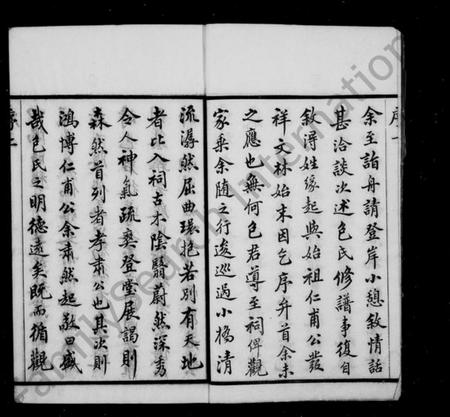 余至詣舟請登岸小憩敘情話
甚洽談次述包氏修譜事復自
敘得姓緣起與始祖仁甫公發
祥文林始末因乞序弁首余未
之應也無何包君導至祠俾觀
家乘余隨之行逡巡過小橋清
流潺然屈曲環抱若別有天地
者比入祠古木陰翳蔚然深秀
令人神氣疏爽登堂展謁則
森然首列者孝肅公也其次則
鴻博仁甫公余肅然起敬曰盛
哉包氏之明德遠矣既而循觀
序一
序二
FamilySearch International